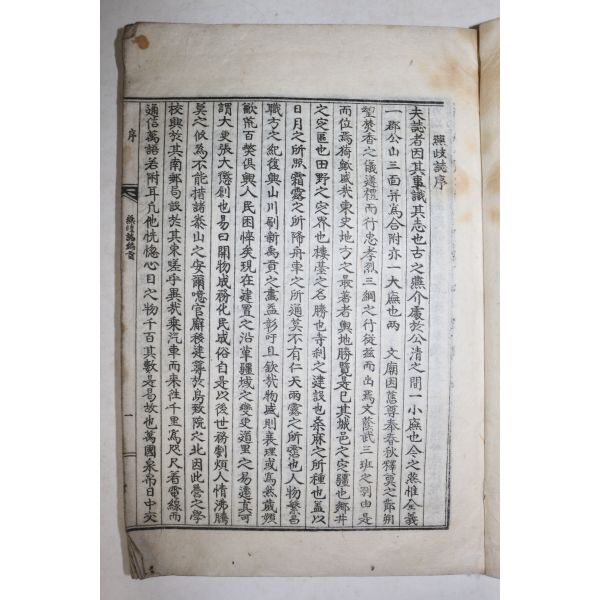 燕岐誌序
夫誌者因其事識其志也古之燕介處於公清之間一小縣也今之燕惟全義
一郡公山三面幷爲合附亦一大縣也兩 文廟因舊尊奉春秋釋奠之節朔
望焚香之儀遵禮而行忠孝烈三綱之行從玆而出焉文蔭武三班之別由是
而位焉猗歟盛哉東史地方之最著者輿地勝覽是已其城邑之定疆也鄕井
之定區也田野之定界也樓臺之名勝也寺刹之建設也桑麻之所種也盖以
日月之所照霜露之所降舟車之所通莫不有仁天雨露之所霑也人物繁昌
職方之紀復興山川刷新禹貢之畵益彰吁且歎哉物盛則衰理或爲然歲頻
歉荒百獘俱興人民困悴矣現在建置之沿革疆域之變更道里之易遷眞可
謂大更張大懲創也易曰開物成務化民成俗自是以後世務劇煩人情沸騰
莫之似爲不能措諸泰山之安爾噫官廨移建尊於鳥致院之北因此營之學
校興於其南郵局設於其東嗟乎異哉乘汽車而來往千里爲咫尺若電線而
通信萬語若附耳凡他恍惚心目之物千百其數是曷故也萬國泉帛日中交
序
燕岐誌編首
一